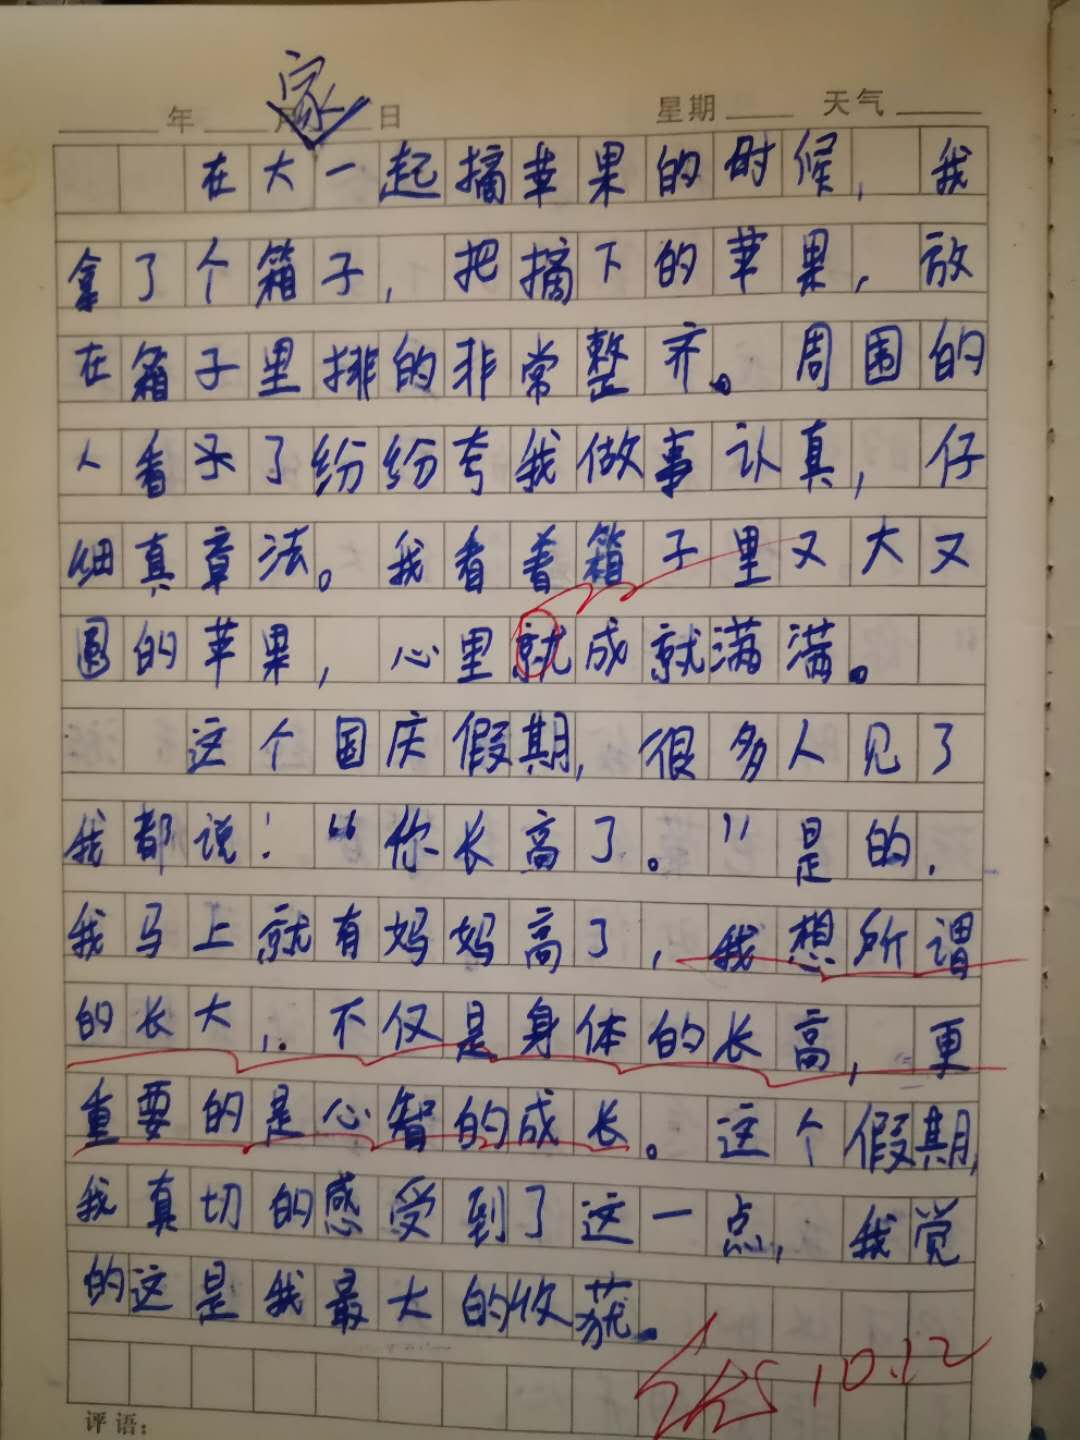 家
年 月 日 星期 天气
在大一起摘苹果的时候,我
拿了个箱子,把摘下的苹果,放
在箱子里排的非常整齐。周围的
人看了纷纷夸我做事认真,仔
细真章法。我看着箱子里又大又
圆的苹果,心里就成就满满。
这个国庆假期,很多人见了
我都说:“你长高了。”是的,
我马上就有妈妈高了,我想所谓
的长大,不仅是身体的长高,更
重要的是心智的成长。这个假期,
我真切的感受到了这一点,我觉
的这是我最大的收获。
10.12
评语: